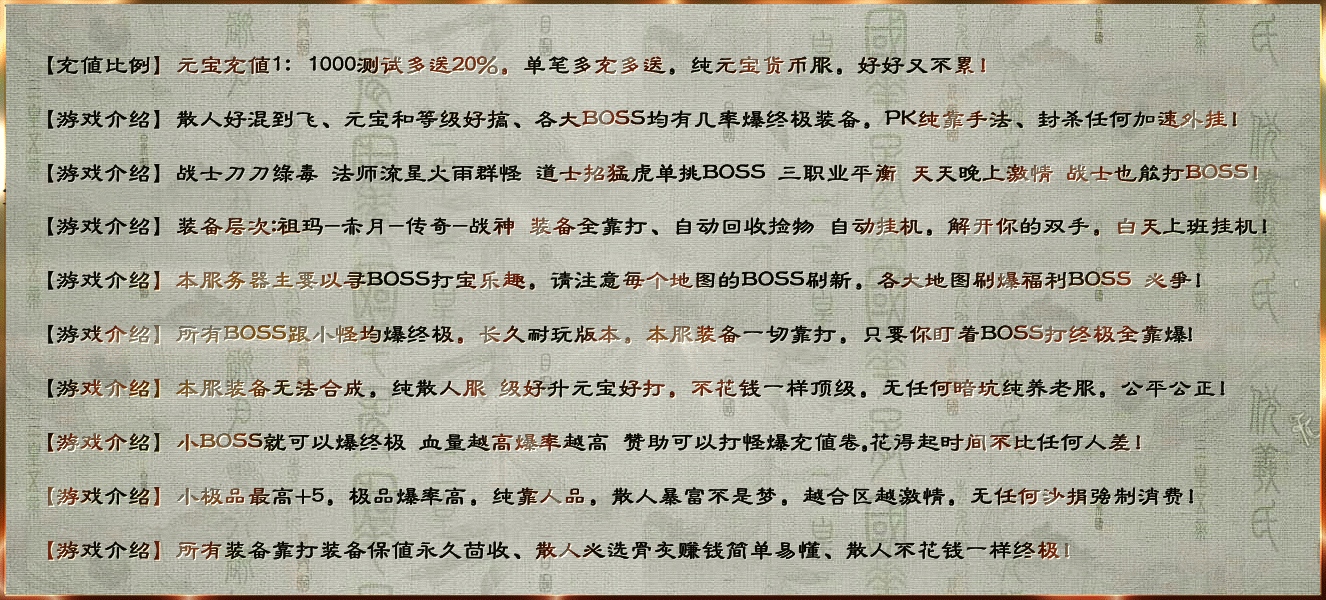 【充值比例】元宝充值1：1000测试多送20%。单笔多充多送。纯元宝货币服。好好又不累！
【游戏介绍】散人好混到飞、元宝和等级好搞、各大BOSS均有几率爆终极装备。PK纯靠手法、封杀任何加速外挂！
【游戏介绍】战士刀刀绿毒 法师流星火雨群怪 道士招猛虎单挑BOSS 三职业平衡 天天晚上激情 战士也能打BOSS！
【游戏介绍】装备层次:祖玛—赤月—传奇—战神 装备全靠打、自动回收捡物 自动挂机。解开你的双手。白天上班挂机！
【游戏介绍】本服务器主要以寻BOSS打宝乐趣。请注意每个地图的BOSS刷新。各大地图刷爆福利BOSS 必争！
【游戏介绍】所有BOSS跟小怪均爆终极。长久耐玩版本。本服装备一切靠打。只要你盯着BOSS打终极全靠爆!
【游戏介绍】本服装备无法合成。纯散人服 级好升元宝好打。不花钱一样顶级。无任何暗坑纯养老服。公平公正！
【游戏介绍】小BOSS就可以爆终极 血量越高爆率越高 赞助可以打怪爆充值卷,花得起时间不比任何人差！
【游戏介绍】小极品最高+5。极品爆率高。纯靠人品。散人暴富不是梦。越合区越激情。无任何沙捐强制消费！
【游戏介绍】所有装备靠打装备保值永久茴收、散人必选骨灰赚钱简单易懂、散人不花钱一样终极！